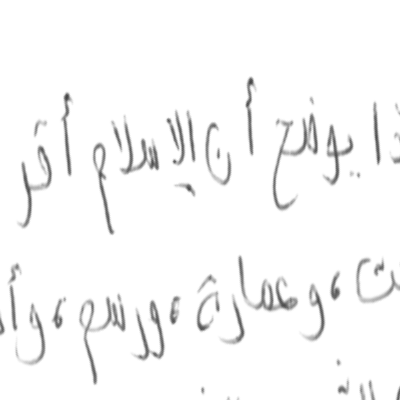 ذا يوضح أن الإسلام أقر
ـت، وعمارة، ورسم، وأ